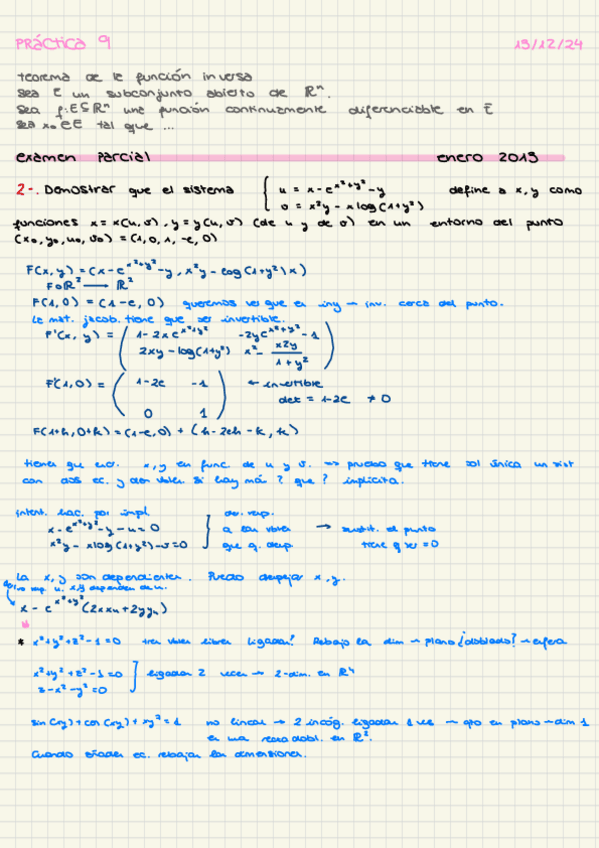 PRÁCTICA 9 13/12/24
teorema de le función inversa
sea E un subconjunto abierto de ℝⁿ.
sea f: E⊆ℝⁿ una función continuamente diferenciable en E
sea x₀ ∈ E tal que ...
examen parcial enero 2013
2-. Demostrar que el sistema { u = x - e^(x²+y²) - y define a x, y como
v = x²y - x log(1+y²)
funciones x = x(u,v), y = y(u,v) (de u y de v) en un entorno del punto
(x₀, y₀, u₀, v₀) = (1, 0, 1, -e, 0)
F(x, y) = (x - e^(x²+y²) - y, x²y - log(1+y²)x)
F: ℝ² → ℝ²
F(1, 0) = (1-e, 0) queremos ver que es iny → inv. cerca del punto.
la mat. jacob. tiene que ser invertible.
F'(x, y) = ( 1 - 2x e^(x²+y²) -2y e^(x²+y²) - 1
2xy - log(1+y²) x² - x2y / 1+y² )
F'(1, 0) = ( 1-2e -1 ← invertible
det = 1-2e ≠ 0
0 1 )
F(1+h, 0+k) = (1-e, 0) + (h-2eh-k, k)
x, y en func de u y v. ⇒ pruebo que tiene sol única un sist
con dos ec. y dos vbles si hay más ? que ? implícita.
intent. hac. por impl. der. resp.
x - e^(x²+y²) - y - u = 0 a las vbles → sustit. el punto
x²y - x log(1+y²) - v = 0 que q. desp. tiene q ser = 0
La x, y son dependientes. Puedo despejar x, y.
resp. u. x, y dependen de u.
x - e^(x²+y²) (2xxᵤ + 2yyᵤ)
* x²+y²+z²-1=0 tres vbles libres ligadas? Rebajo la dim → plano ¿doblado? → esfera
x²+y²+z²-1=0 ligadas 2 veces → 2-dim. en ℝ⁴
z-x²-y²=0
sin(xy) + cos(xy) + xy² = 1 no lineal → 2 incóg. ligadas 1 vez → qto en plano → dim 1
es una recta dobl. en ℝ².
Cuando añades ec. rebajas las dimensiones.